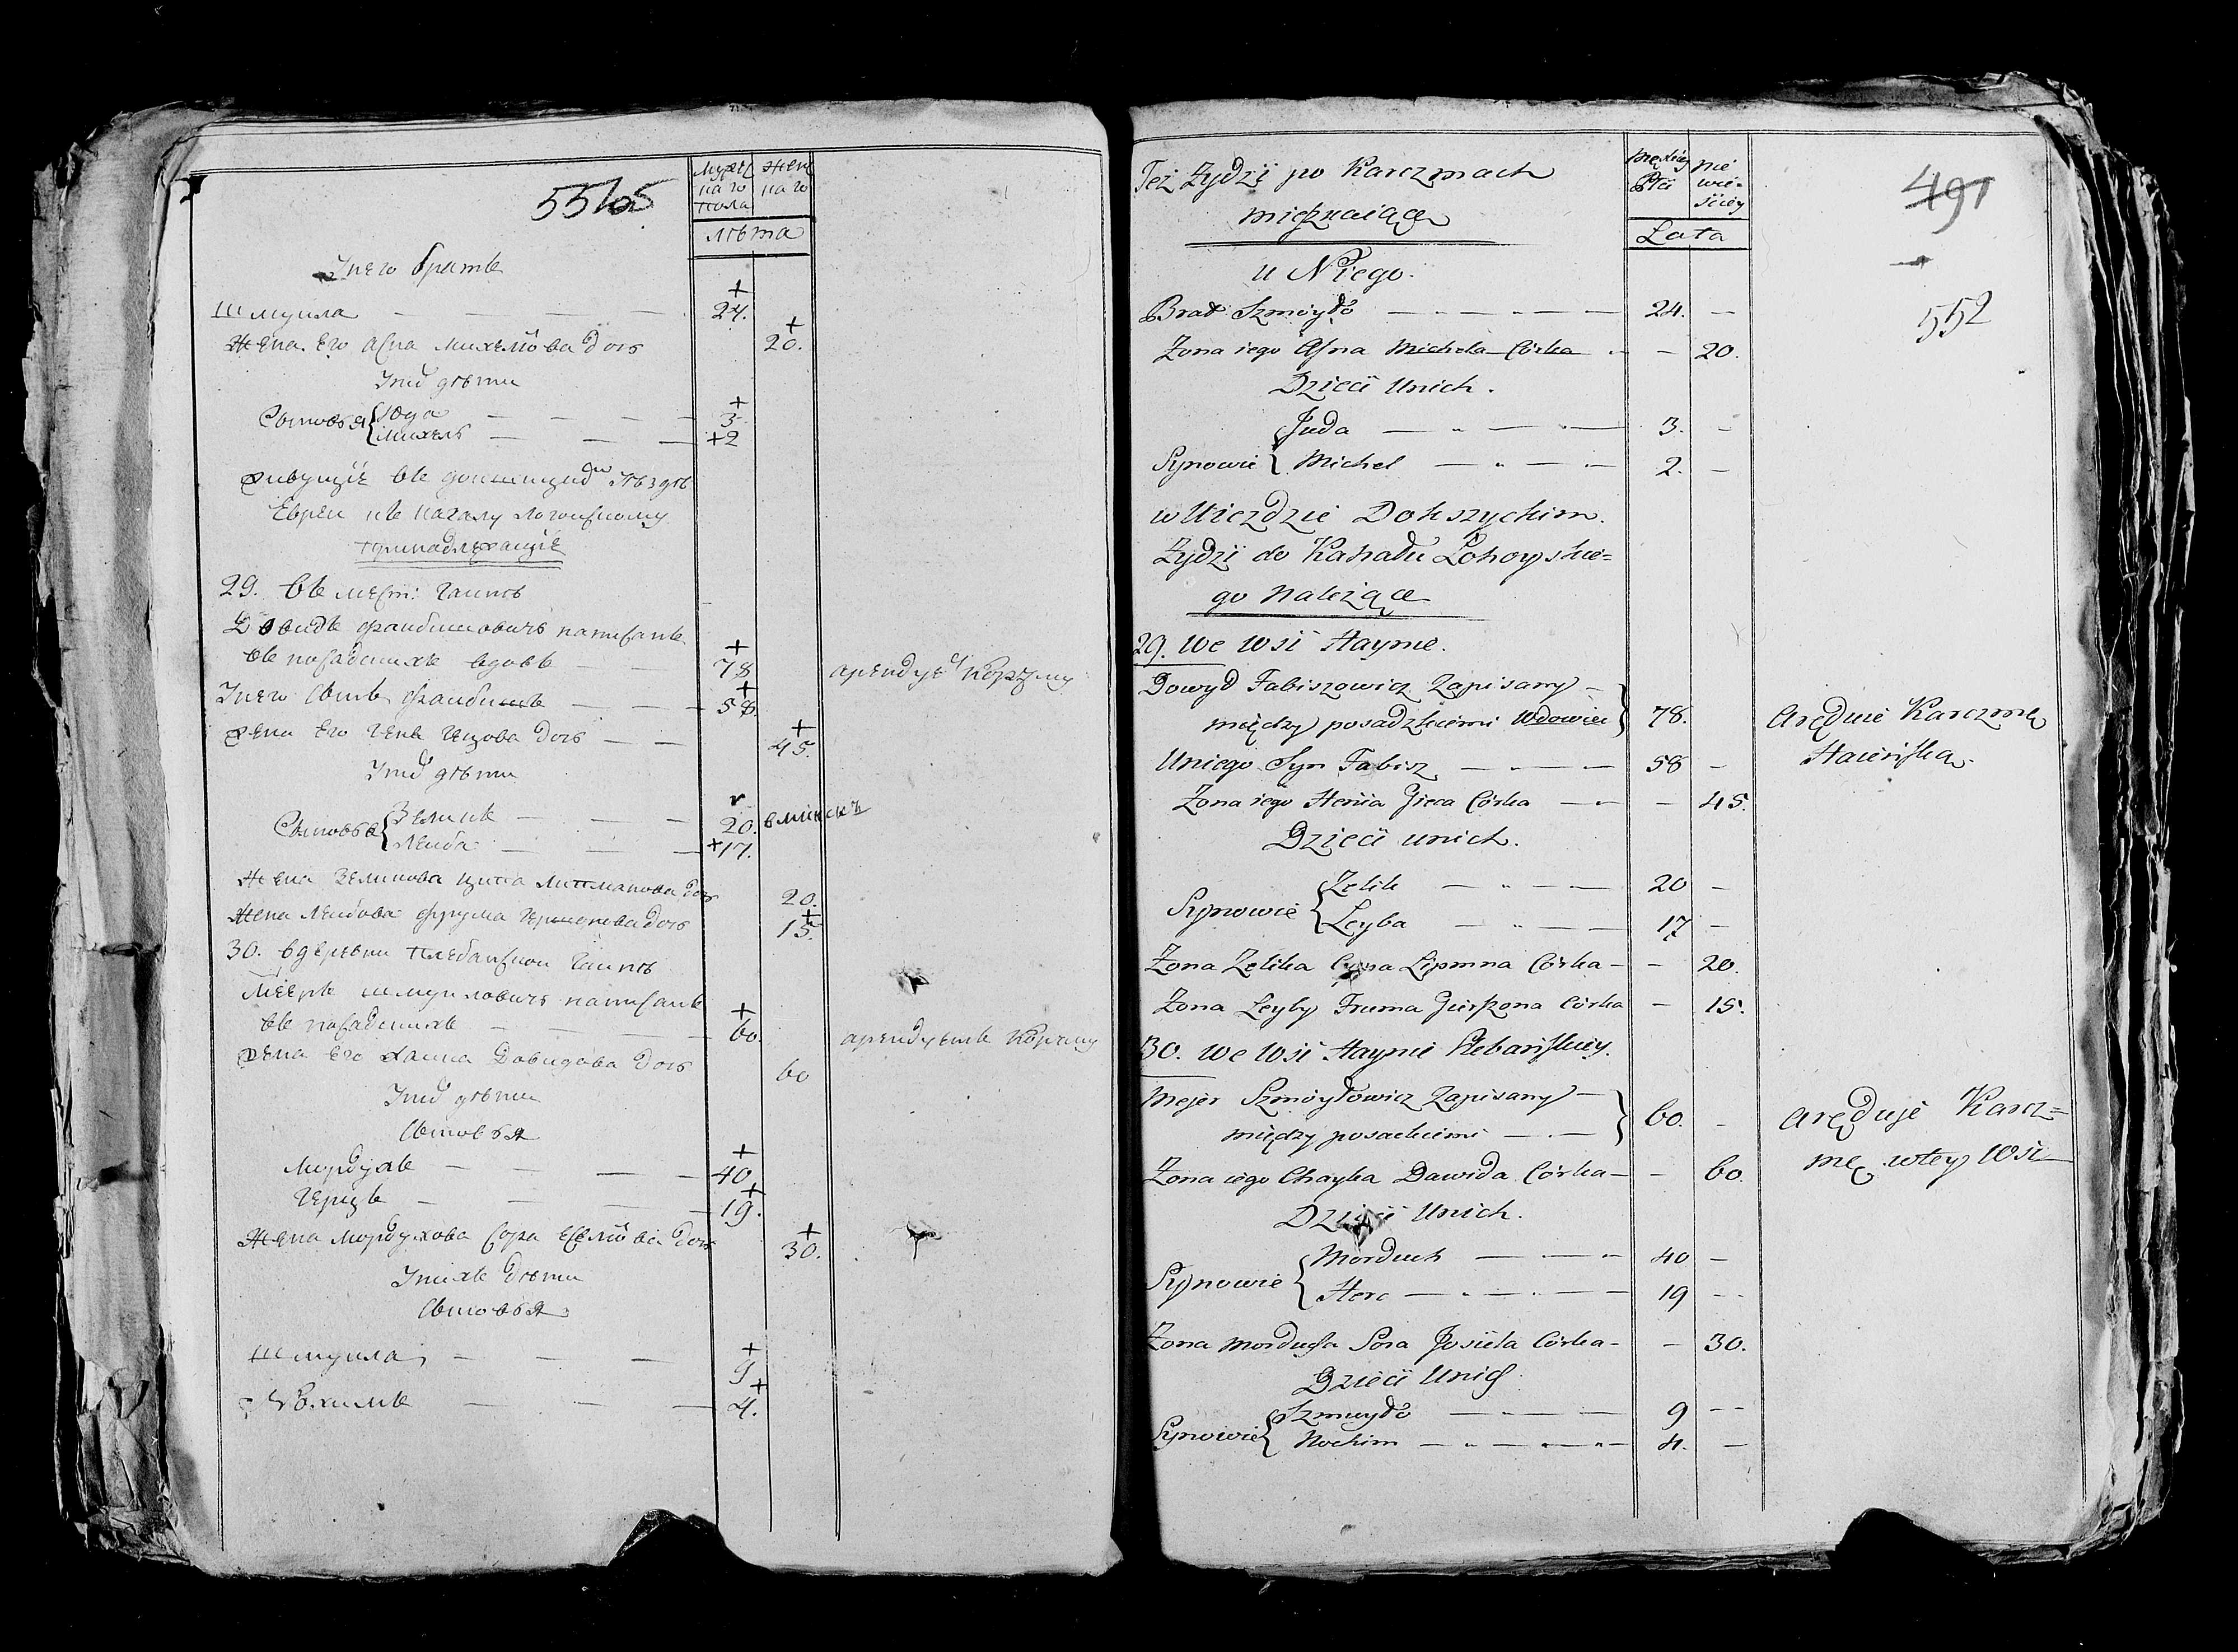 Мужес
каго
пола
Женс
каго
лѣта
Унего братъ
Шмуила 24.
Жена его Асна Михелова дочь 20.
Уних дѣти
Сыновья Юда 3
Михель 2
живущіе въ докшицкой уѣздѣ
Евреи къ кагалу логойскому
принадлежащіе
29. въ мест: гайнѣ
Довидъ файбишовичъ написанъ
въ посадскихъ вдовъ 78 арендує корчму
Унего сынъ файбишъ 58.
жена его Геня Гецова дочь 45.
Уних дѣти
Сыновья Зеликъ 20. вминскъ
Лейба 17.
Жена Зеликова Ципа Липманова дочь 20.
Жена Лейбова фрума Гершонова дочь 15.
30. вдеревни плебанской гайнѣ
Мееръ шмуиловичъ написанъ
въ посадскихъ 60. арендуетъ корчму
жена его Хайка Довидова дочь 60
Уних дѣти
Сыновья
Мордухъ 40
Герцъ 19.
Жена Мордухова Сора Еселіова дочь 30.
Унихъ дѣти
Сыновья
Шмуила 9
Нохимъ 4.
Też Żydzi po Karczmach
mięszkaiące
Męskiey
Płci
Nie
wie=
ściey
Lata
491
u Niego.
552
Brat Szmoyło 24. –
Zona iego Asna Michela Córka – 20.
Dzieci Unich.
Juda 3. –
Synowie Michel 2. –
w Uiezdzie Dokszyckim.
Żydzi do Kahału Łohoyskie=
go należące
29. We Wsi Haynie.
Dowyd Fabiszowicz Zapisany –
między posadzkiemi Wdowiec 78. Aręduie Karczmę
Uniego Syn Fabisz 58 – Haieńską.
Zona iego Henia Gieca Córka – 45.
Dzieci unich.
Synowie Zelik 20 –
Leyba 17 –
Zona Zelika Cypa Lipmna Córka – 20.
Zona Leyby Fruma Gierszona Córka – 15.
30. We Wsi Haynie Plebańskiey.
Mejer Szmoyłowicz Zapisany –
między posadkiemi 60. – Aręduje Karcz=
Zona iego Chayka Dawida Córka – 60. mę wtey Wsi
Dzieci Unich.
Synowie Morduch 40 –
Herc 19 –
Zona Morducha Sora Josiela Córka – 30.
Dzieci Unich
Synowie Szmuyło 9 –
Nochim 4. –